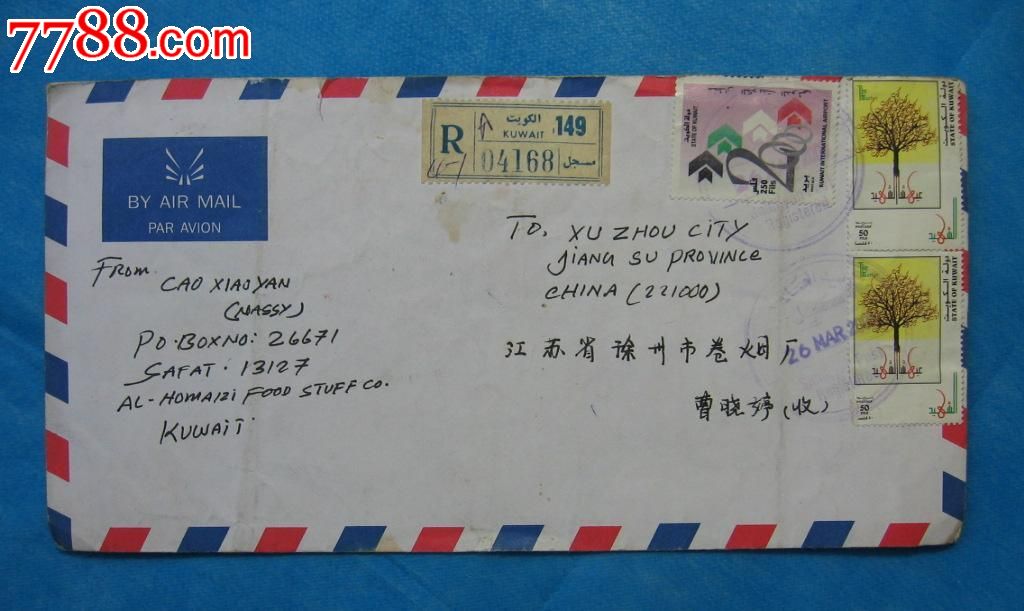 7788.com
BY AIR MAIL
PAR AVION
R
الكويت
KUWAIT
149
04168
مسجل
دولة الكويت
STATE OF KUWAIT
2000
250 Fils
فلس
بريد
KUWAIT INTERNATIONAL AIRPORT
دولة الكويت
STATE OF KUWAIT
50
شهيد
دولة الكويت
STATE OF KUWAIT
50
شهيد
Registered
26 MAR 2
From
CAO XIAOYAN
(NASSY)
PO.BOXNO: 26671
SAFAT. 13127
AL-HOMAIZI FOOD STUFF CO.
KUWAIT
TO, XU ZHOU CITY
JIANG SU PROVINCE
CHINA (221000)
江苏省徐州市卷烟厂
曹晓婷(收)